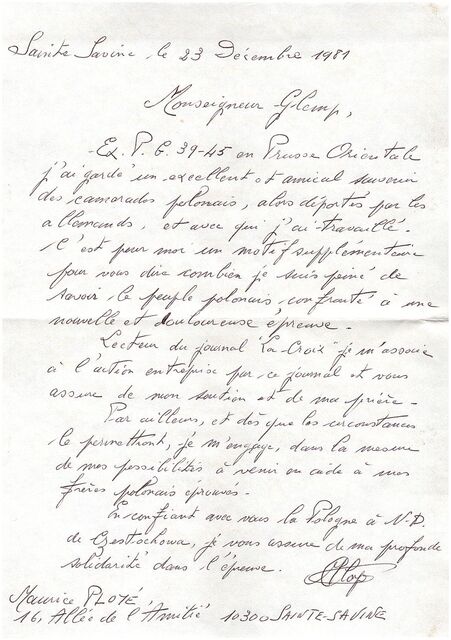 Sainte Savine, le 23 Décembre 1981
Monseigneur Glemp,
Ex. P. G. 39-45 en Prusse Orientale
j'ai gardé un excellent et amical souvenir
des camarades polonais, alors déportés par les
allemands, et avec qui j'ai travaillé.
C'est pour moi un motif supplémentaire
pour vous dire combien je suis peiné de
savoir le peuple polonais, confronté à une
nouvelle et douloureuse épreuve.
Lecteur du journal "La-Croix" je m'associe
à l'action entreprise par ce journal et vous
assure de mon soutien et de ma prière.
Par ailleurs, et dès que les circonstances
le permettront, je m'engage, dans la mesure
de mes possibilités à venir en aide à mes
frères polonais éprouvés.
En confiant avec vous la Pologne à N-D.
de Czestochowa, je vous assure de ma profonde
solidarité dans l'épreuve.
Maurice PLOYÉ
16, Allée de l'Amitié 10300 SAINTE-SAVINE